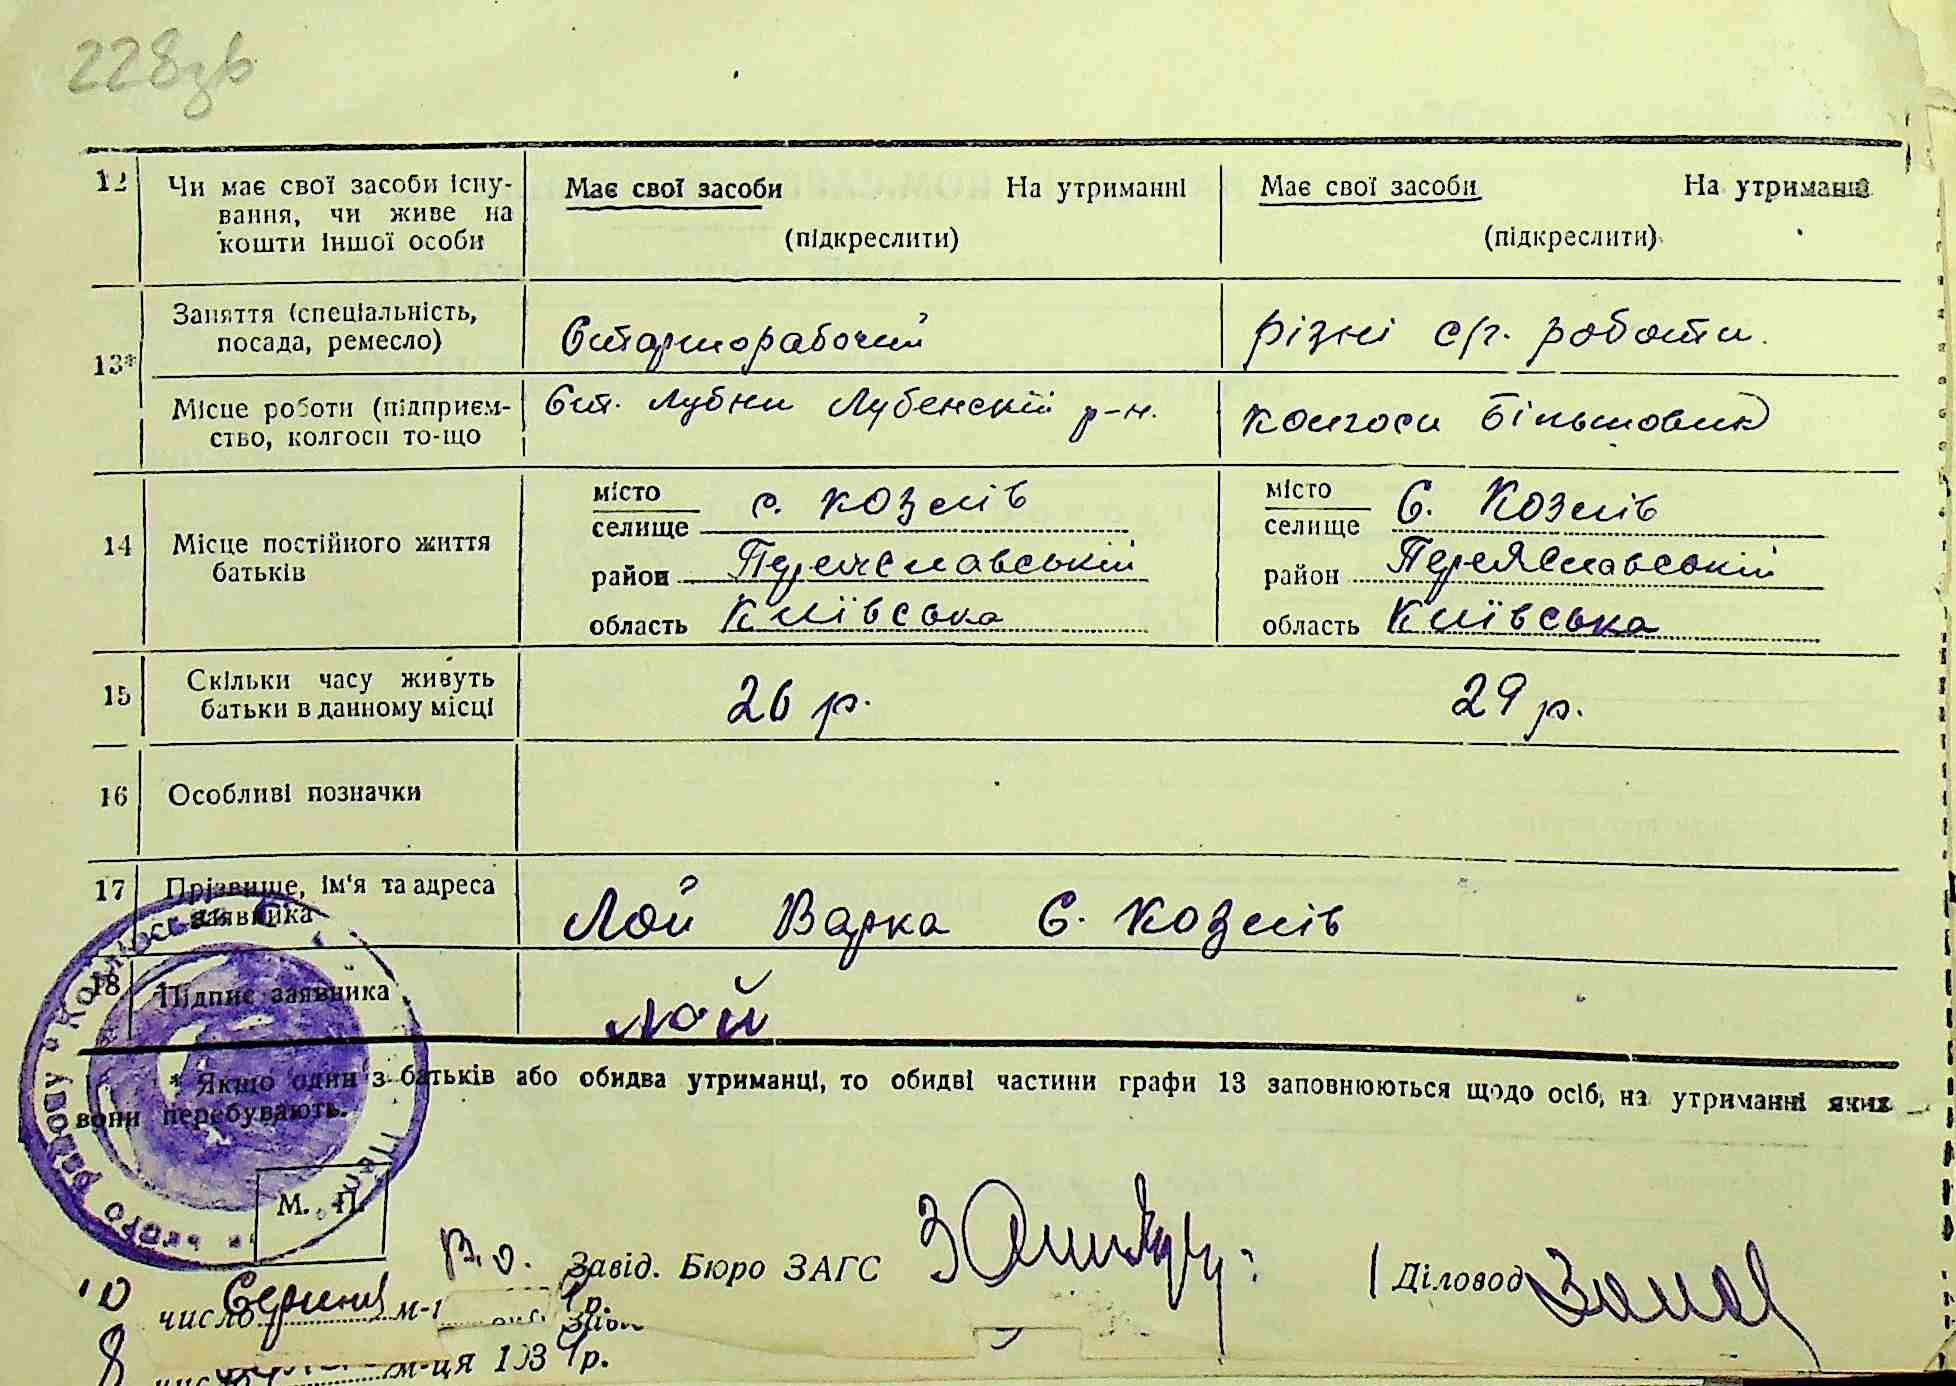 228зв
12 Чи має свої засоби існу- Має свої засоби На утриманні Має свої засоби На утриманні
вання, чи живе на
кошти іншої особи (підкреслити) (підкреслити)
13* Заняття (спеціальність, різні с/г. роботи.
посада, ремесло)
Місце роботи (підприєм- Ст. Лубни Лубенскій р-н. колгосп Більшовик
ство, колгосп то-що
14 Місце постійного життя батьків
місто с. Козлів місто С. Козлів
селище селище
район Переяславській район Переяславській
область Київська область Київська
15 Скільки часу живуть 26 р. 29 р.
батьки в данному місці
16 Особливі позначки
17 Прізвище, ім'я та адреса Лой Варка С. Козлів
заявника
18 Підпис заявника Лой
* Якщо один з батьків або обидва утриманці, то обидві частини графи 13 заповнюються щодо осіб, на утриманні яких
вони перебувають.
М. П.
В.о. Завід. Бюро ЗАГС Діловод
10 число Серпня
8 число м-ця 193 р.